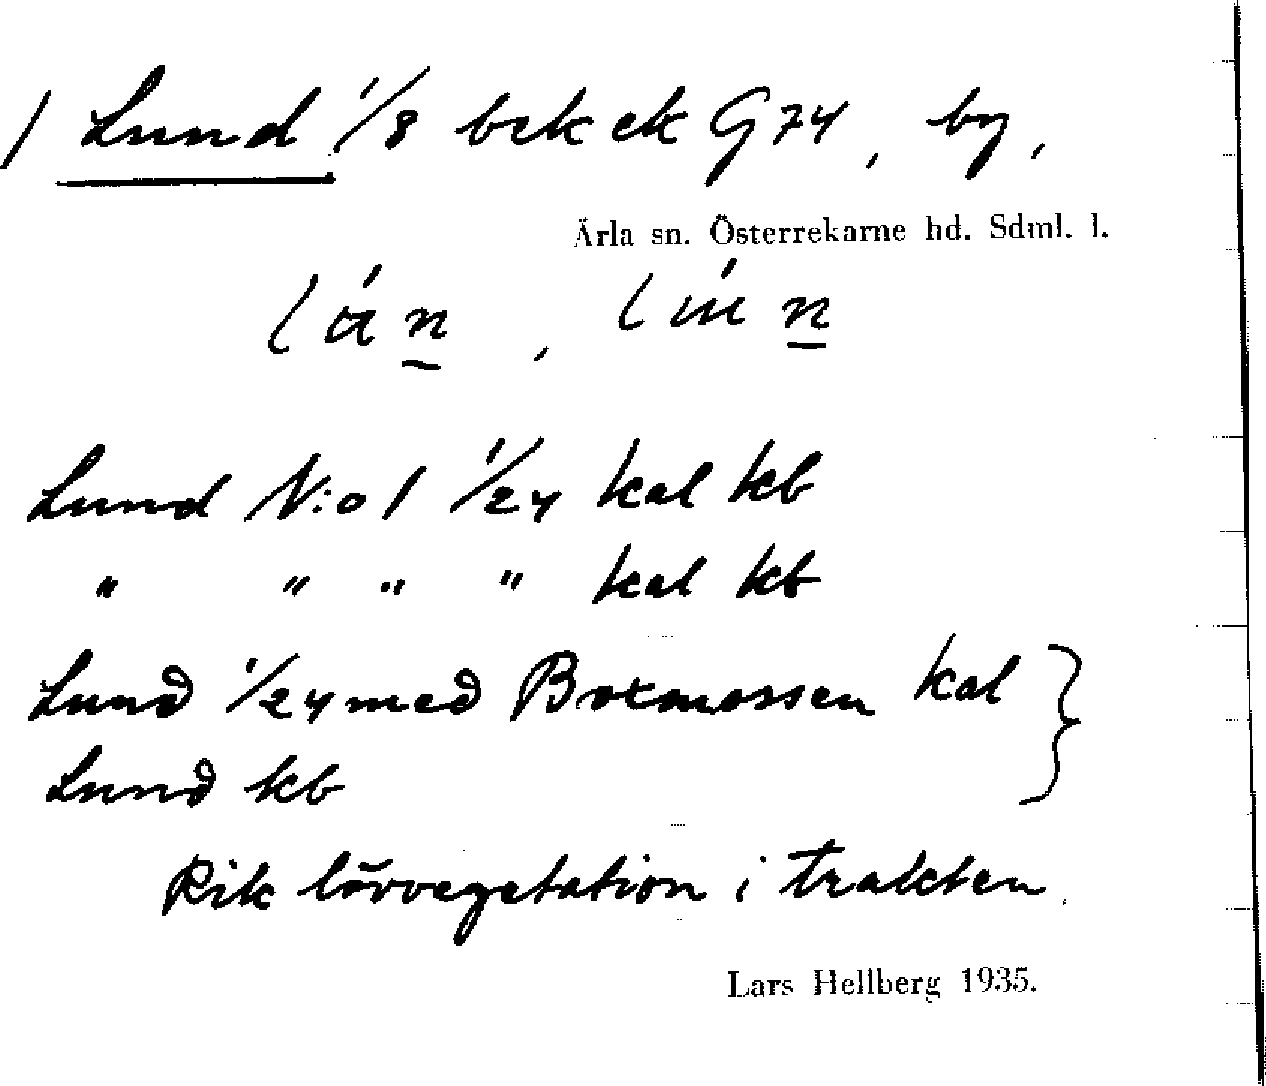 / Lund 1/8 bek ek G74, by,
Ärla sn. Österrekarne hd. Sdml. l.
Lund N:o 1 1/24 kal kb
" " " " kal kb
Lund 1/24 med Botmossen kal }
Lund kb
Rik lövvegetation i trakten.
Lars Hellberg 1935.